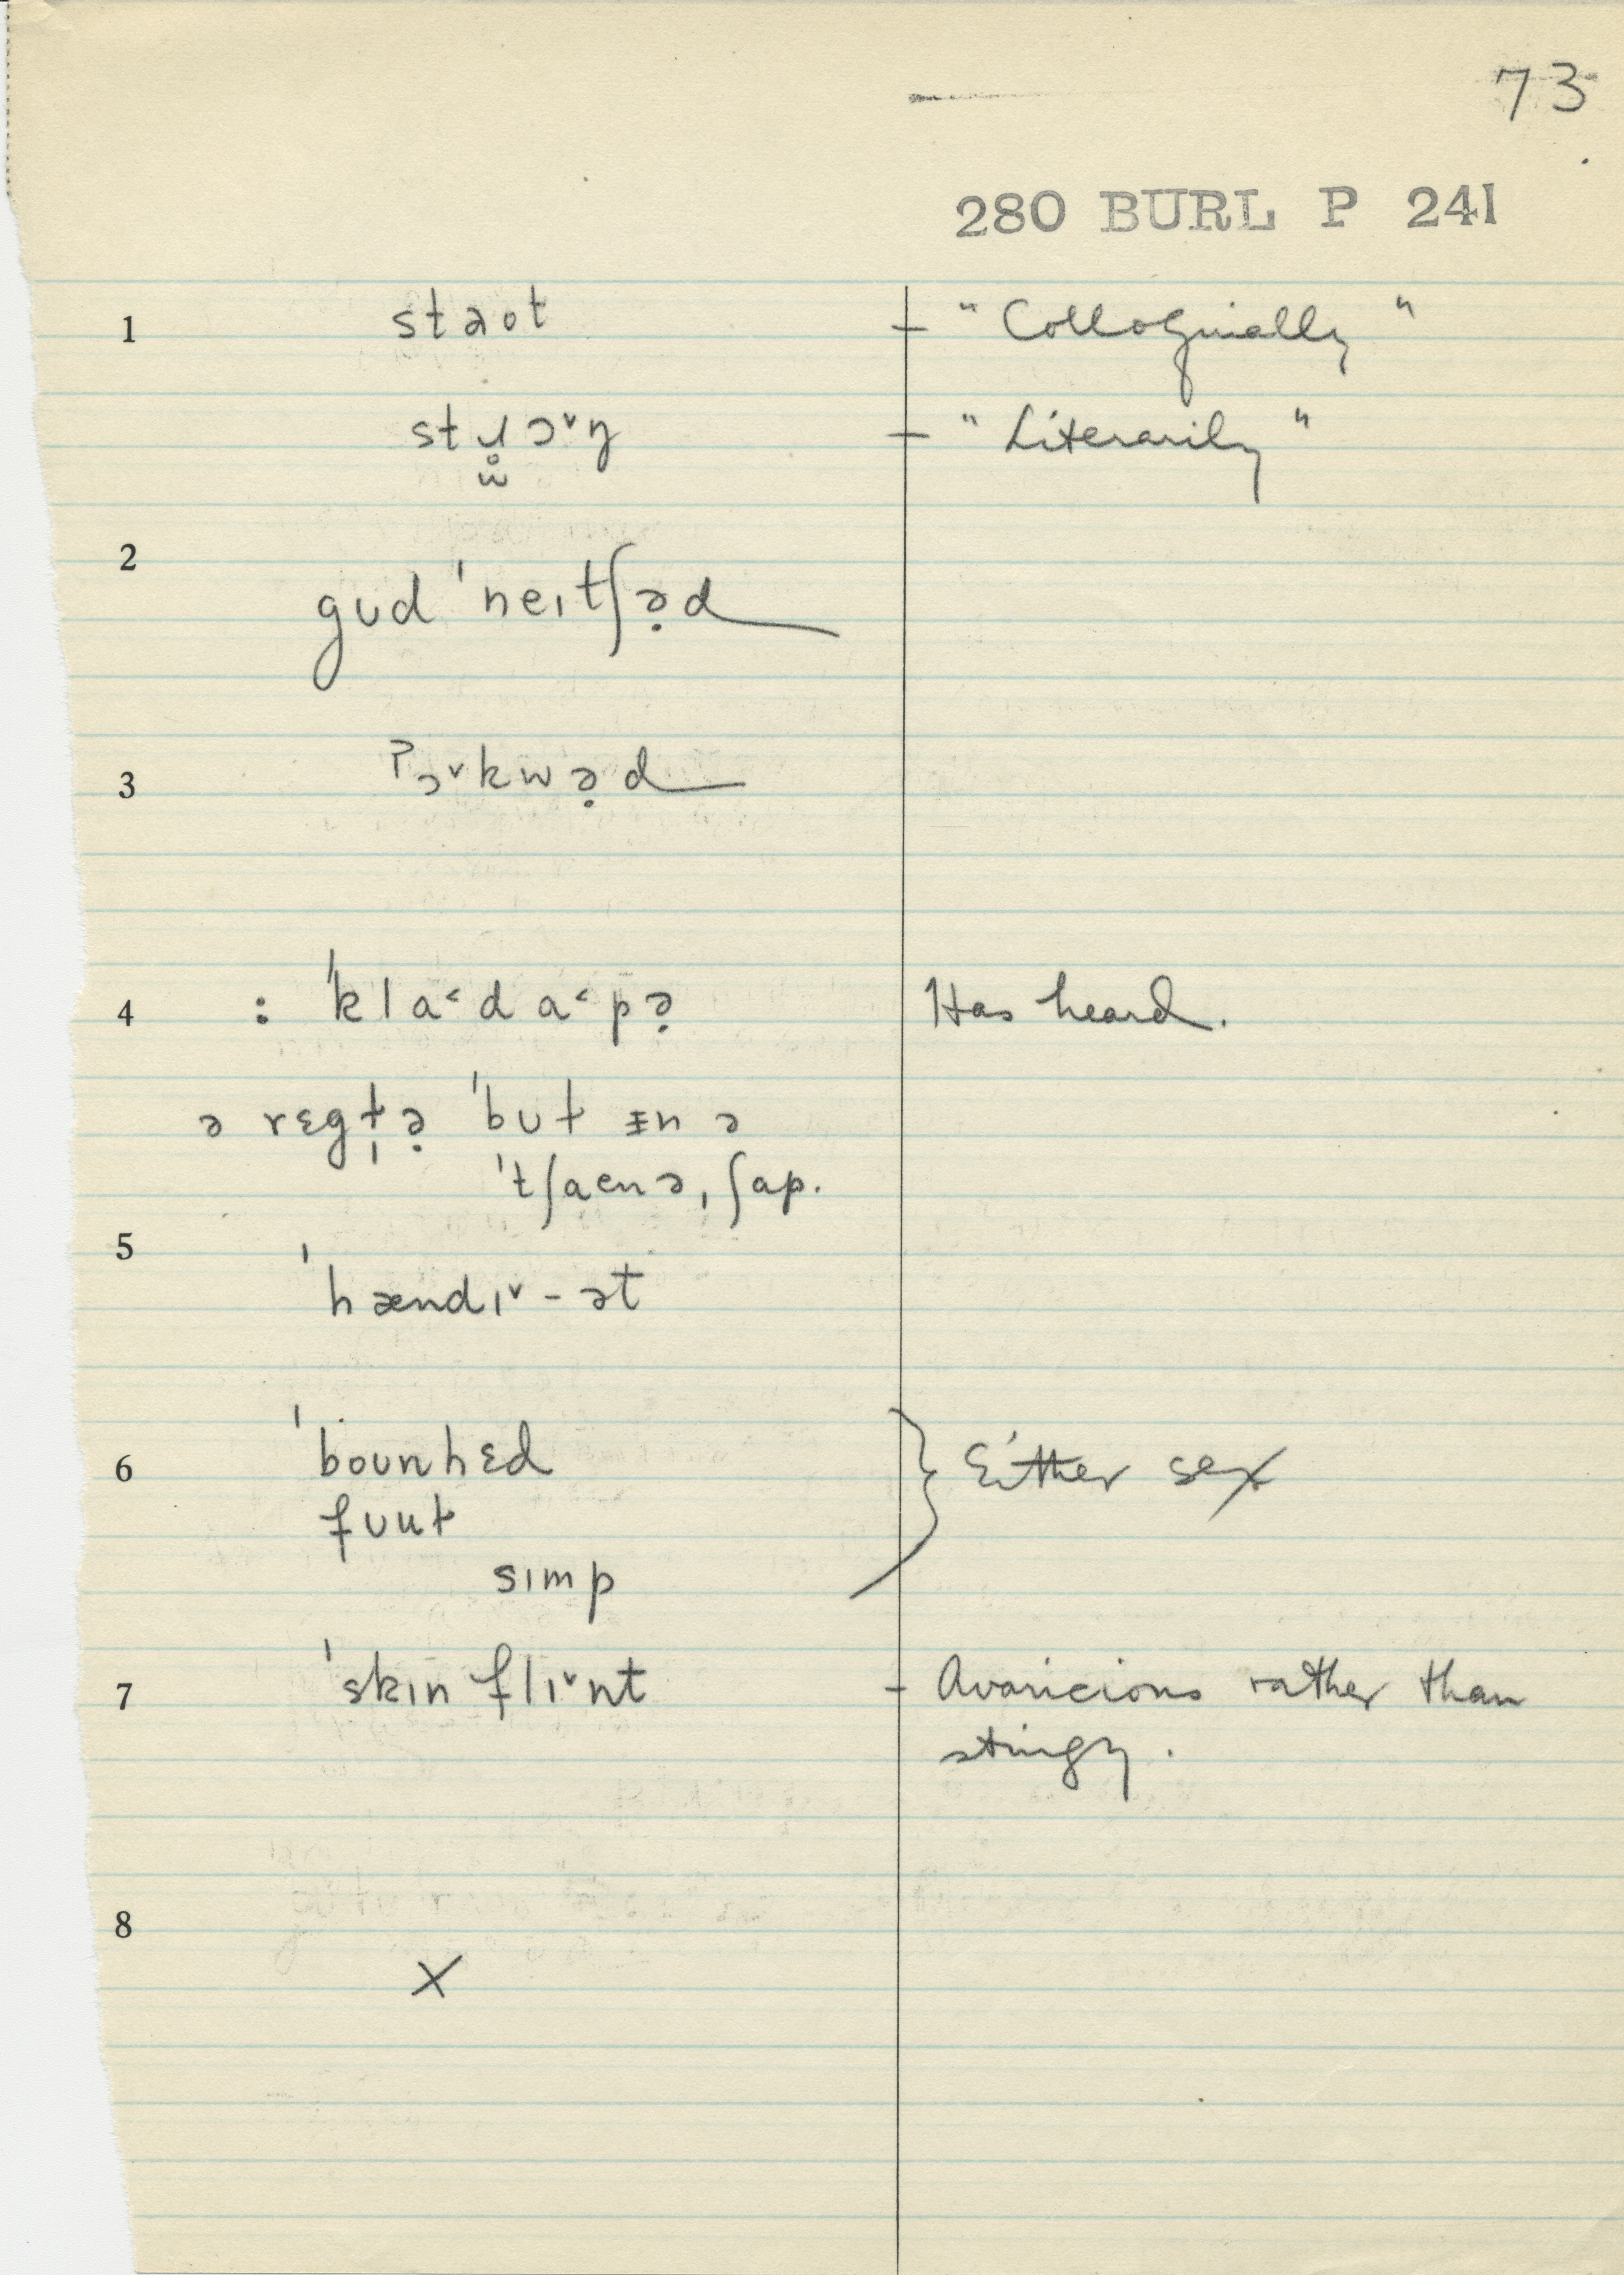 73
280 BURL P 241
1 staot - " Colloquially "
stɹ̥ɔ˅ŋ - " Literarily "
ẘ
2
gʊd ˈneɪtʃə̣d
3 ʔɔ˅kwə̣d
4 : ˈkla˂da˂pə̣ Has heard.
ə rɛgt̩ə̣ ˈbʊt ɪn ə
ˈtʃaenəˌʃap.
5
ˈhændɪ˅-ət
6 ˈbounhɛd } Either sex
fuut
sɪmp
7 ˈskɪnflɪ˅nt - Avaricious rather than
stingy.
8
X